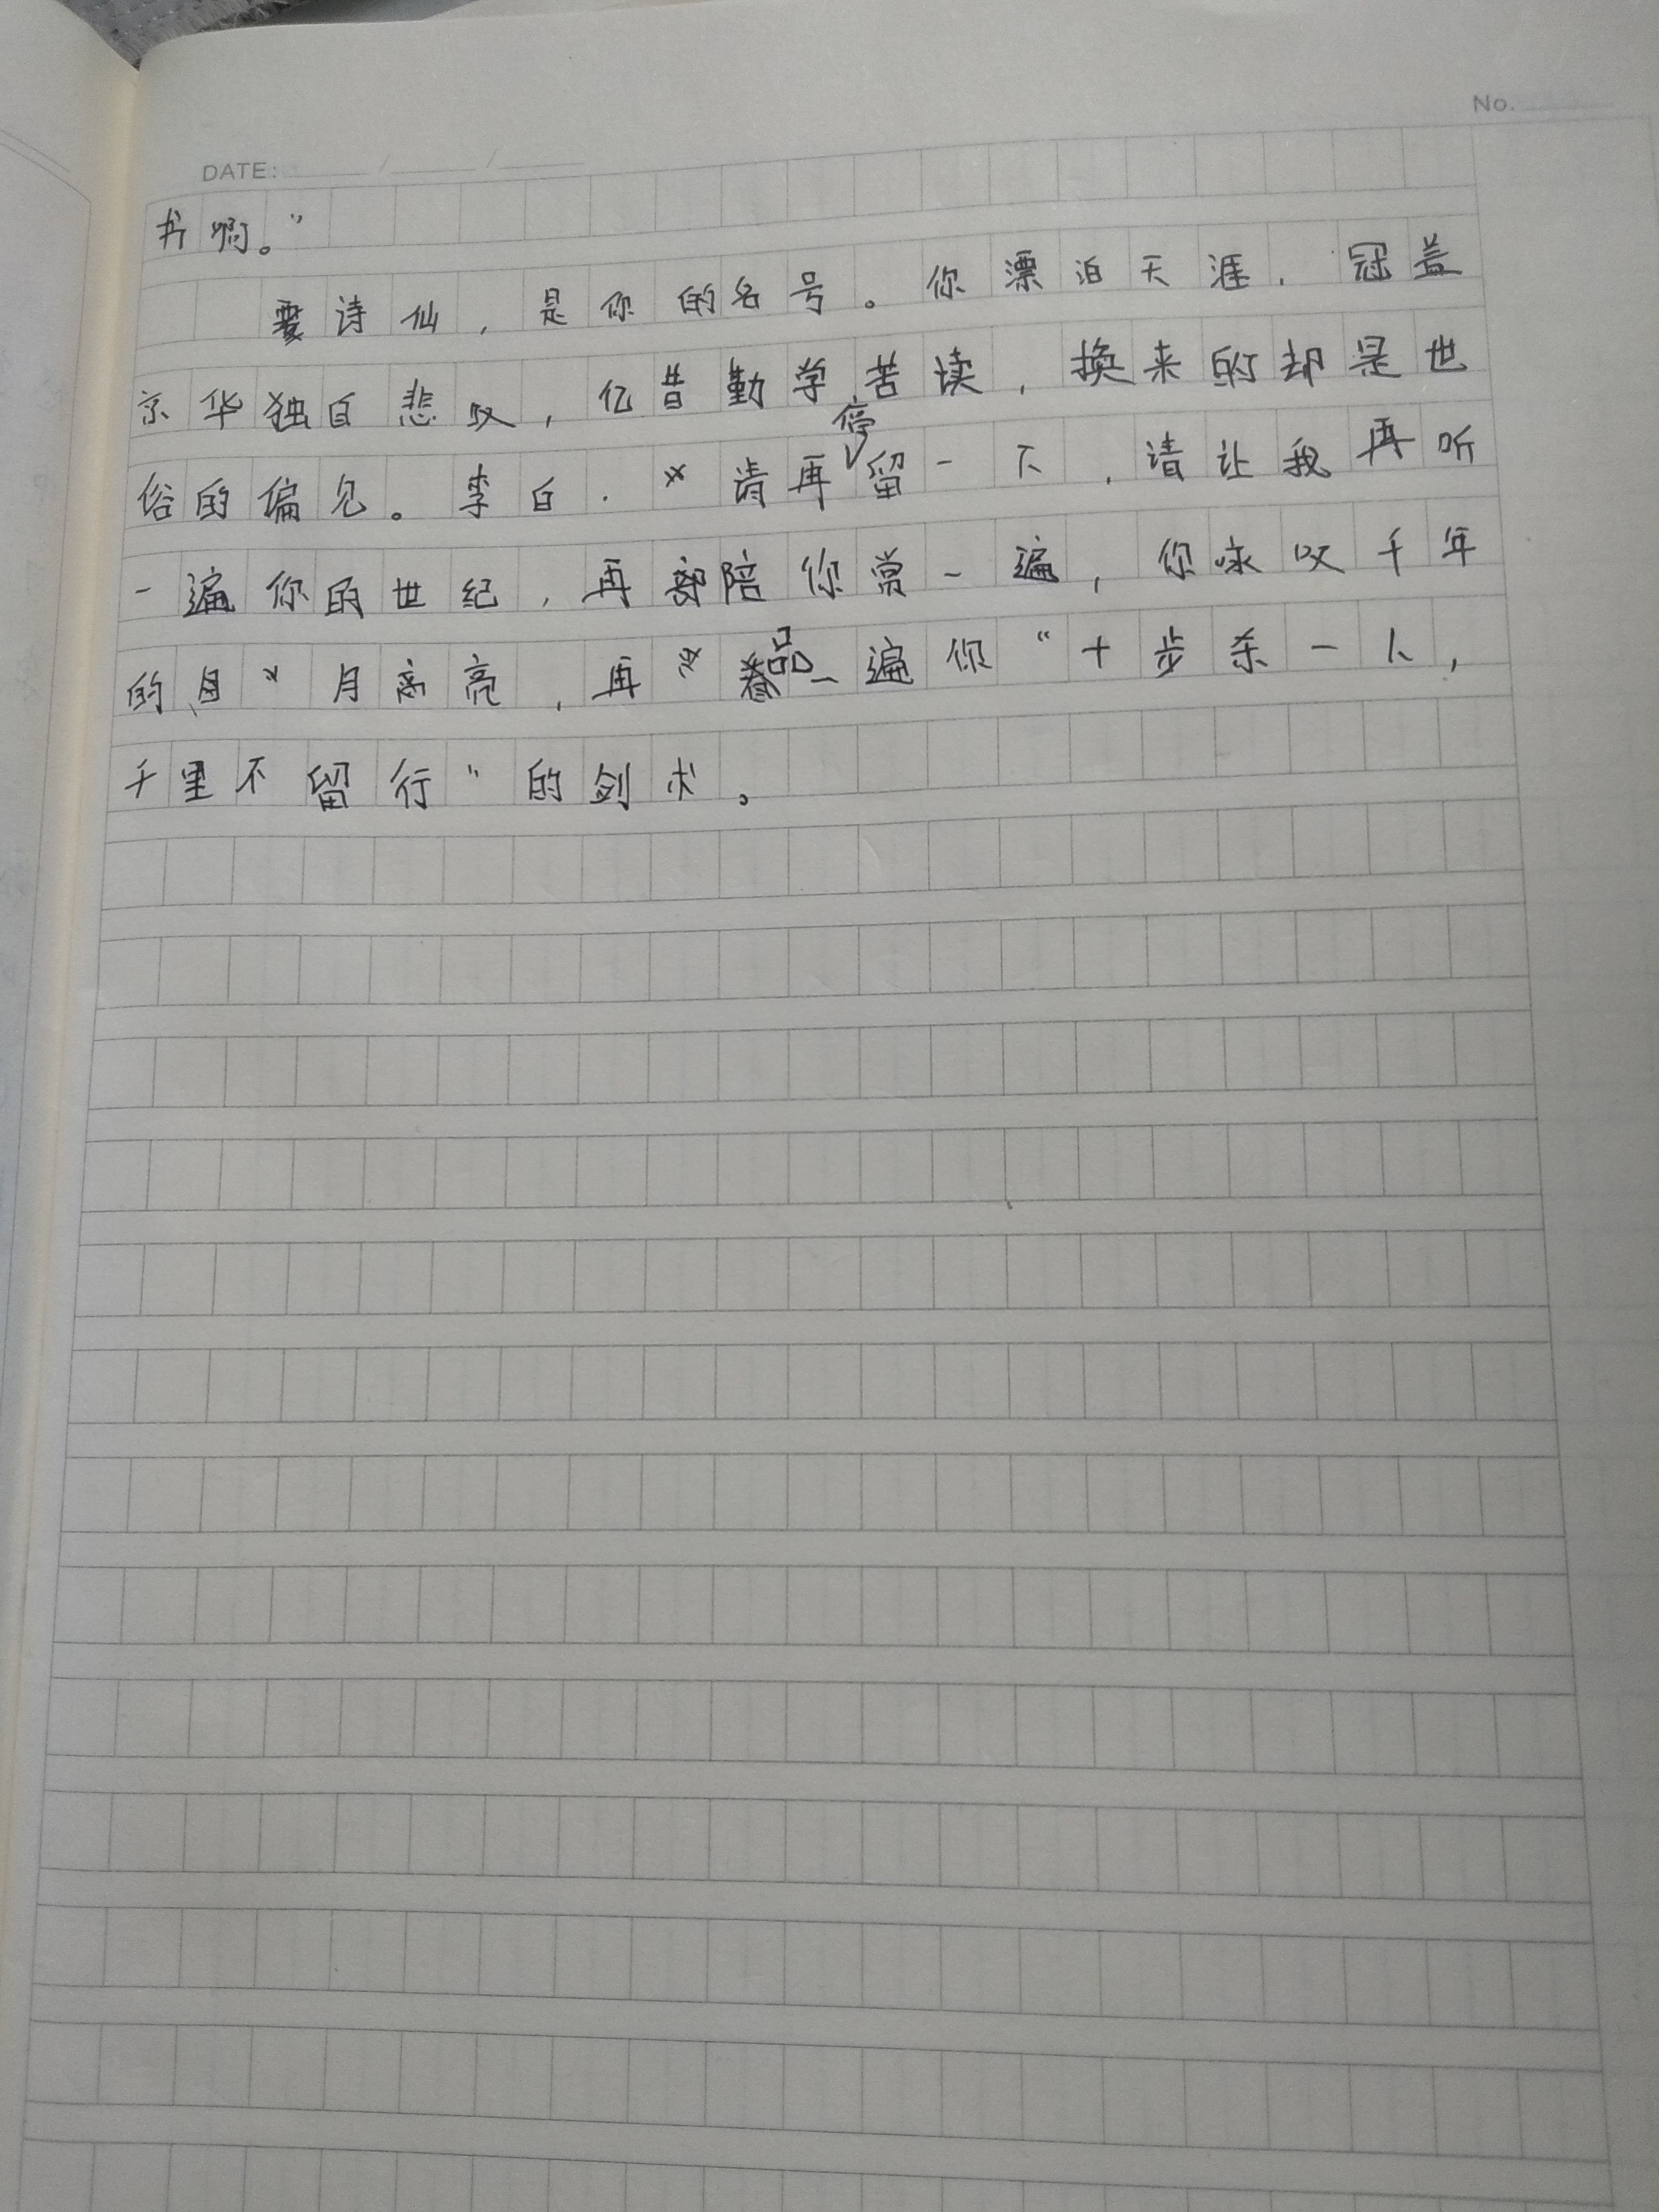 No.
DATE: / /
书啊。”
诗仙，是你的名号。你漂泊天涯，冠盖
京华独自悲叹，亿昔勤学苦读，换来的却是世
俗的偏见。李白，请再停留一下，请让我再听
一遍你的世纪，再陪你赏一遍，你咏叹千年
的月亮，再品一遍你“十步杀一人，
千里不留行”的剑术。